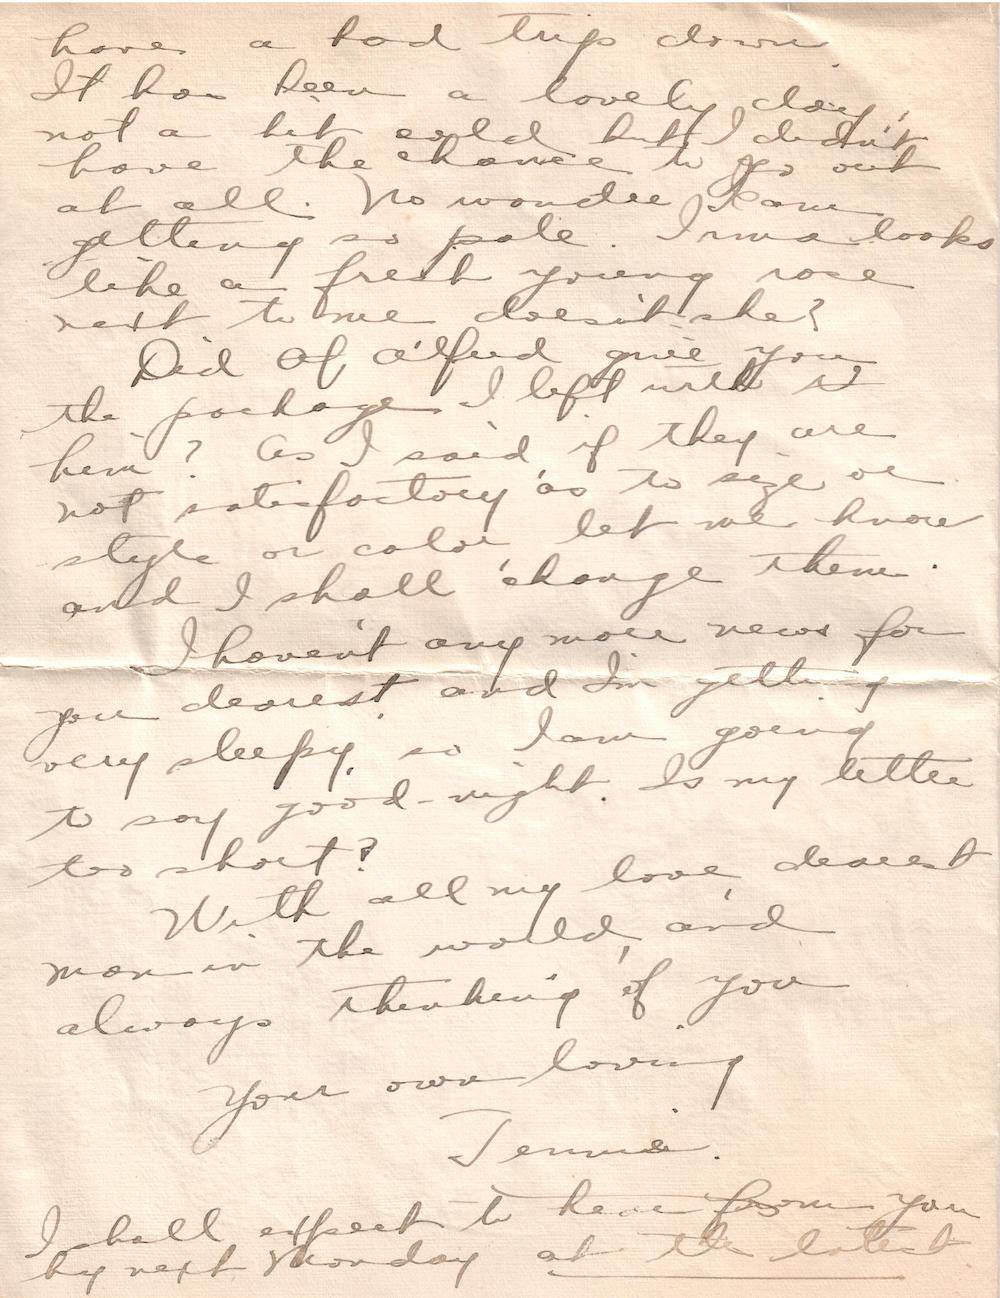 have a bad trip down.
It has been a lovely day,
not a bit cold but I didn't
have the chance to go out
at all. No wonder I am
getting so pale. Irma looks
like a fresh young rose
next to me doesn't she?
Did Alfred give you
the package I left with
him? As I said if they are
not satisfactory as to size or
style or color let me know
and I shall change them.
I haven't any more news for
you dearest, and I'm getting
very sleepy, so I am going
to say good-night. Is my letter
too short?
With all my love, dearest
man in the world, and
always thinking of you
Your own loving
Jennie.
I shall expect to hear from you
by next Monday at the latest